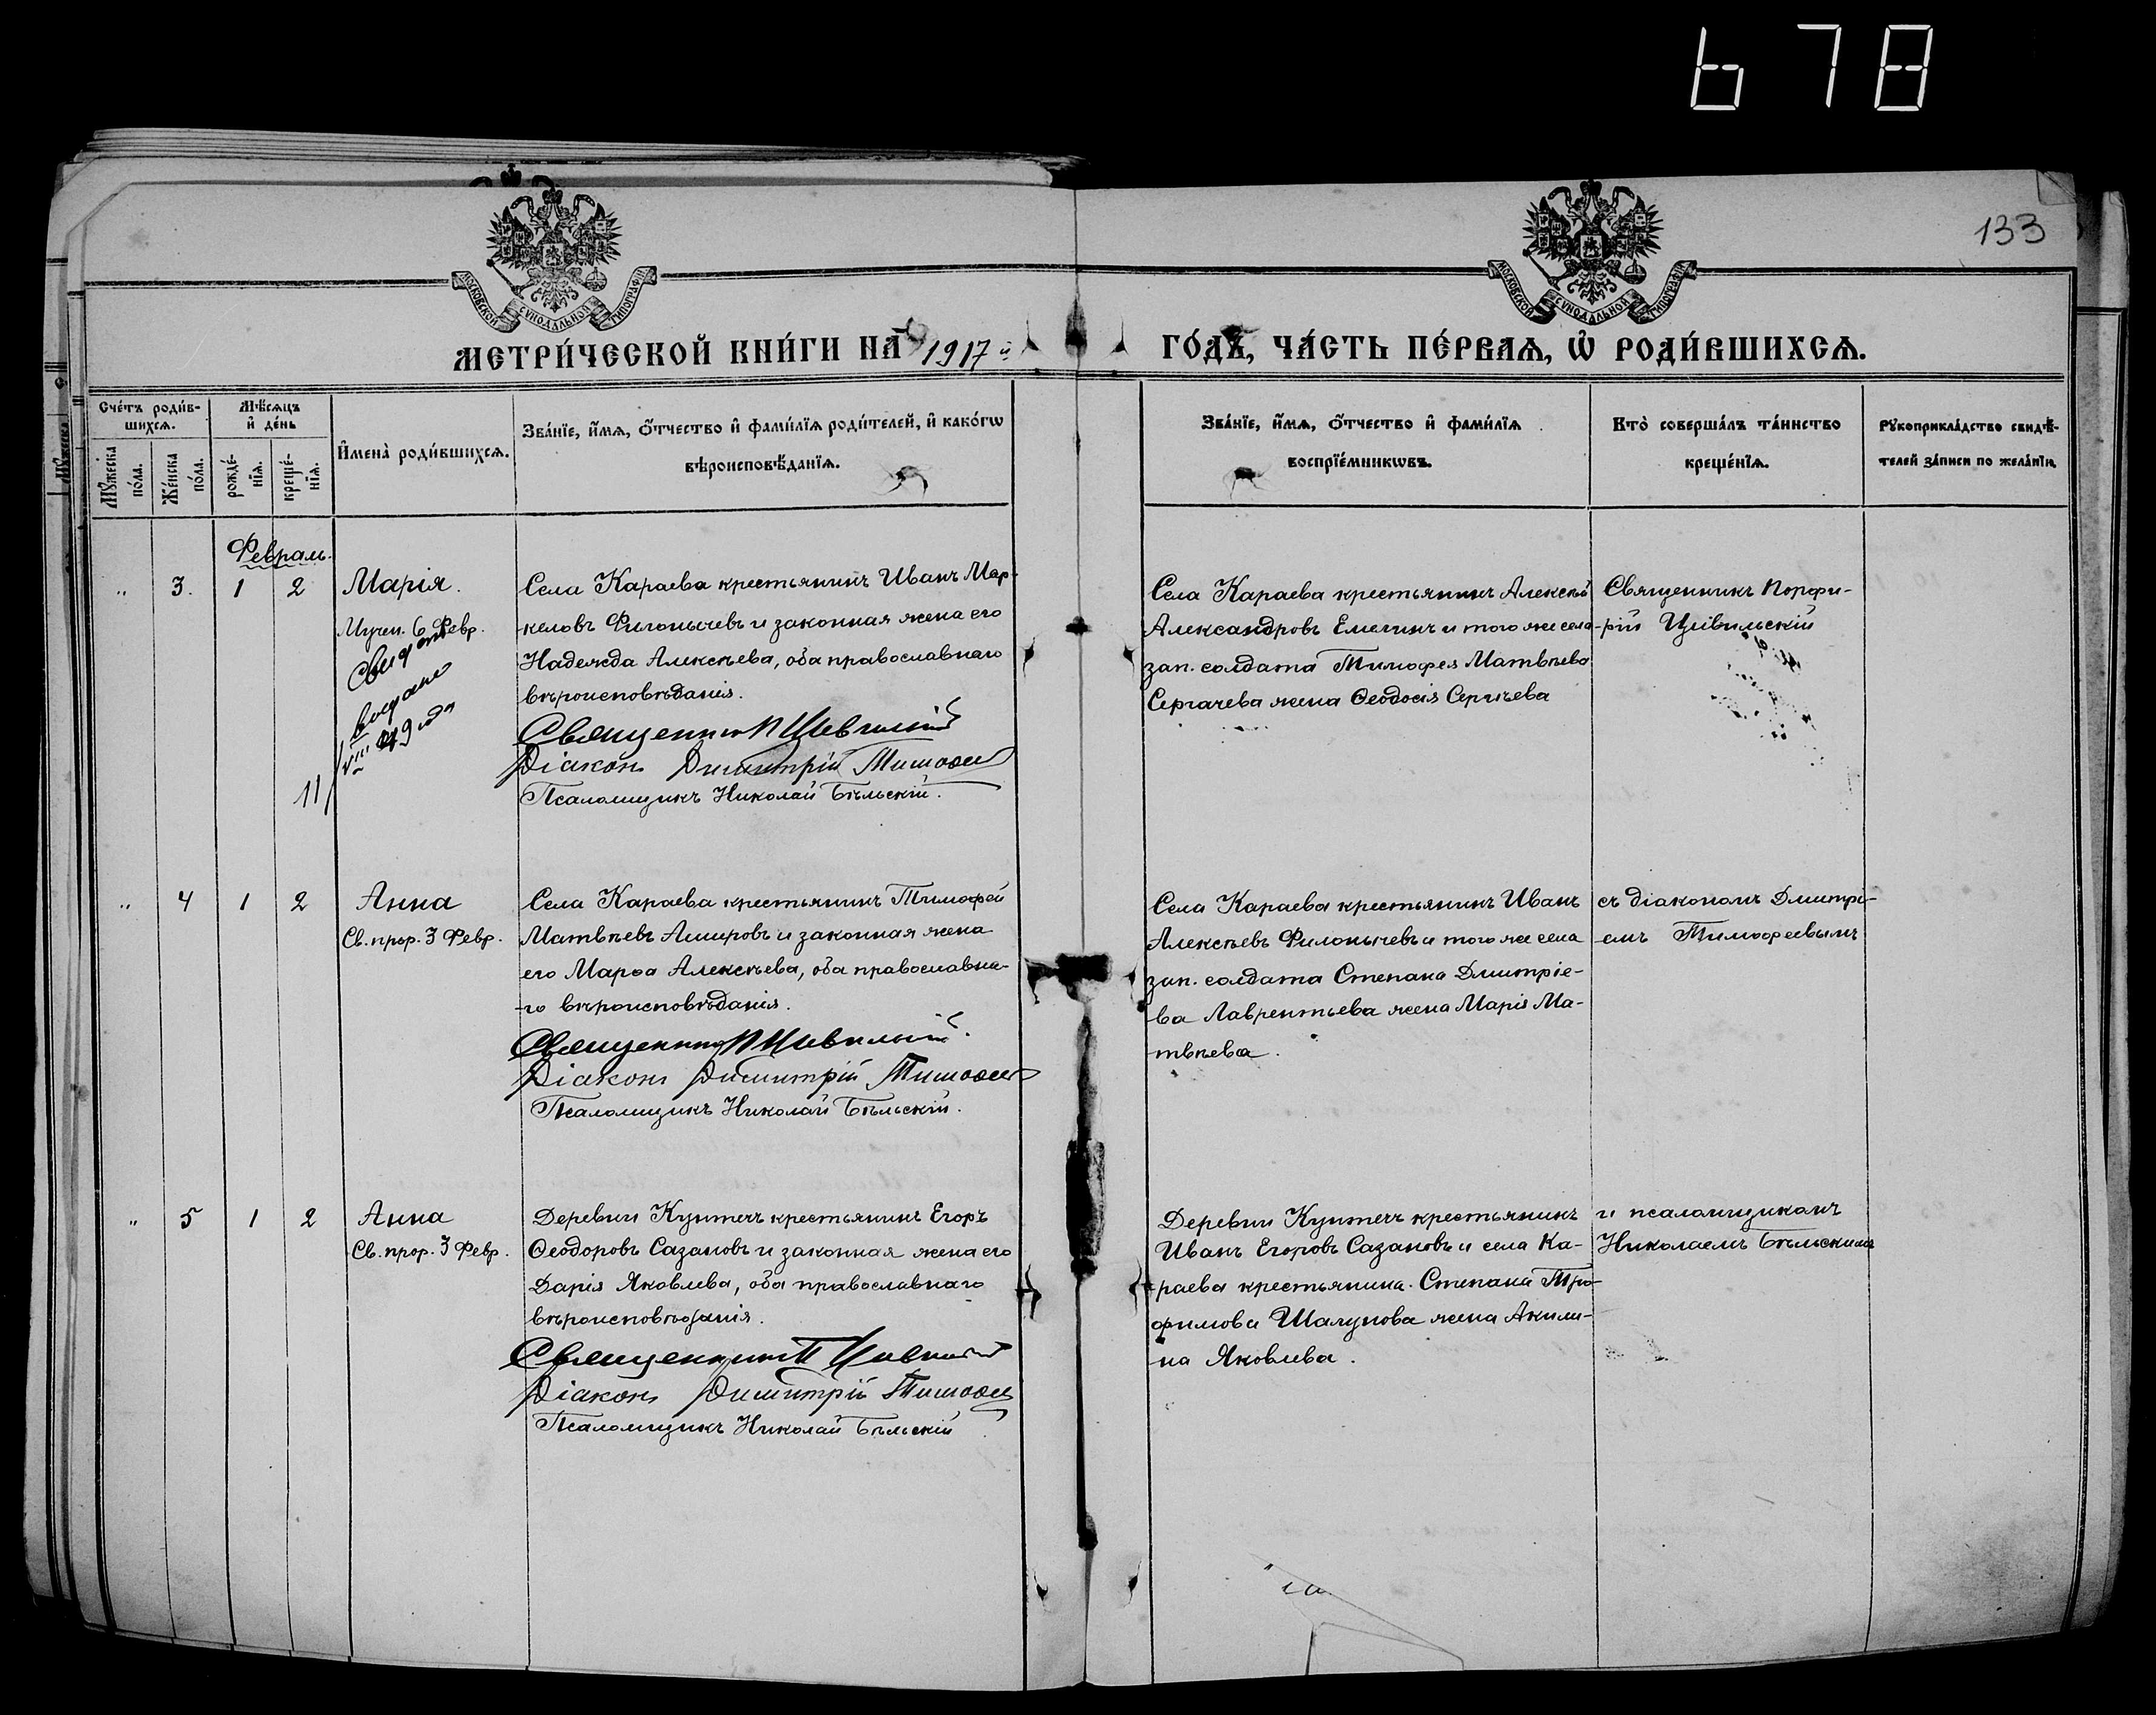 678
133
МОСКОВСКОЙ СУНОДАЛЬНОЙ ТИПОГРАФІИ
МОСКОВСКОЙ СУНОДАЛЬНОЙ ТИПОГРАФІИ
МЕТРИ́ЧЕСКОЙ КНИ́ГИ НА 1917 й
ГО́ДЪ, ЧА́СТЬ ПЕ́РВАѦ, Ѡ҆ РОДИ́ВШИХСѦ.
Сче́тъ роди́в-
шихсѧ.
Мꙋ́жеска по́ла.
Же́нска по́ла.
Мѣ́сѧцъ и҆ де́нь
рожде́-
нїѧ.
креще́-
нїѧ.
И҆мена̀ роди́вшихсѧ.
Зва́нїе, и҆́мѧ, ѻ҆́тчество и҆ фами́лїѧ роди́телей, и҆ како́гѡ
вѣроисповѣ́данїѧ.
Зва́нїе, и҆́мѧ, ѻ҆́тчество и҆ фами́лїѧ
воспрїе́мникѡвъ.
Кто̀ соверша́лъ та́инство
креще́нїѧ.
Рꙋкоприкла́дство свидѣ́-
телей за́писи по жела́нїю.
Февраль.
„ 3. 1 2
Марія.
Мучен. 6 Февр.
Свидет.
выдано
11/VIII 49 года
Села Караева крестьянинъ Иванъ Мар-
келовъ Филонычевъ и законная жена его
Надежда Алексѣева, оба православнаго
вѣроисповѣданія.
Священник П Цивильскій
Діаконъ Димитрій Тимофеев
Псаломщикъ Николай Бѣльскій.
Села Караева крестьянинъ Алексѣй
Александровъ Емелинъ и того же села
зап. солдата Тимофея Матвѣева
Сергачева жена Ѳеодосія Сергѣева
Священникъ Порфи-
рій Цивильскій
„ 4 1 2
Анна
Св. прор. 3 Февр.
Села Караева крестьянинъ Тимофей
Матвѣевъ Амировъ и законная жена
его Марѳа Алексѣева, оба православна-
го вѣроисповѣданія.
Священник П Цивильскій
Діаконъ Димитрій Тимофеев
Псаломщикъ Николай Бѣльскій.
Села Караева крестьянинъ Иванъ
Алексѣевъ Филонычевъ и того же села
зап. солдата Степана Дмитріе-
ва Лаврентьева жена Марія Ма-
твѣева.
съ діакономъ Дмитрі-
емъ Тимофеевымъ
„ 5 1 2
Анна
Св. прор. 3 Февр.
Деревни Кунтечъ крестьянинъ Егоръ
Ѳеодоровъ Сазановъ и законная жена его
Дарія Яковлева, оба православнаго
вѣроисповѣданія.
Священник П Цивильскій
Діаконъ Димитрій Тимофеев
Псаломщикъ Николай Бѣльскій
Деревни Кунтечъ крестьянинъ
Иванъ Егоровъ Сазановъ и села Ка-
раева крестьянина Степана Тро-
фимова Шалунова жена Акили-
на Яковлева.
и псаломщикомъ
Николаемъ Бѣльскимъ